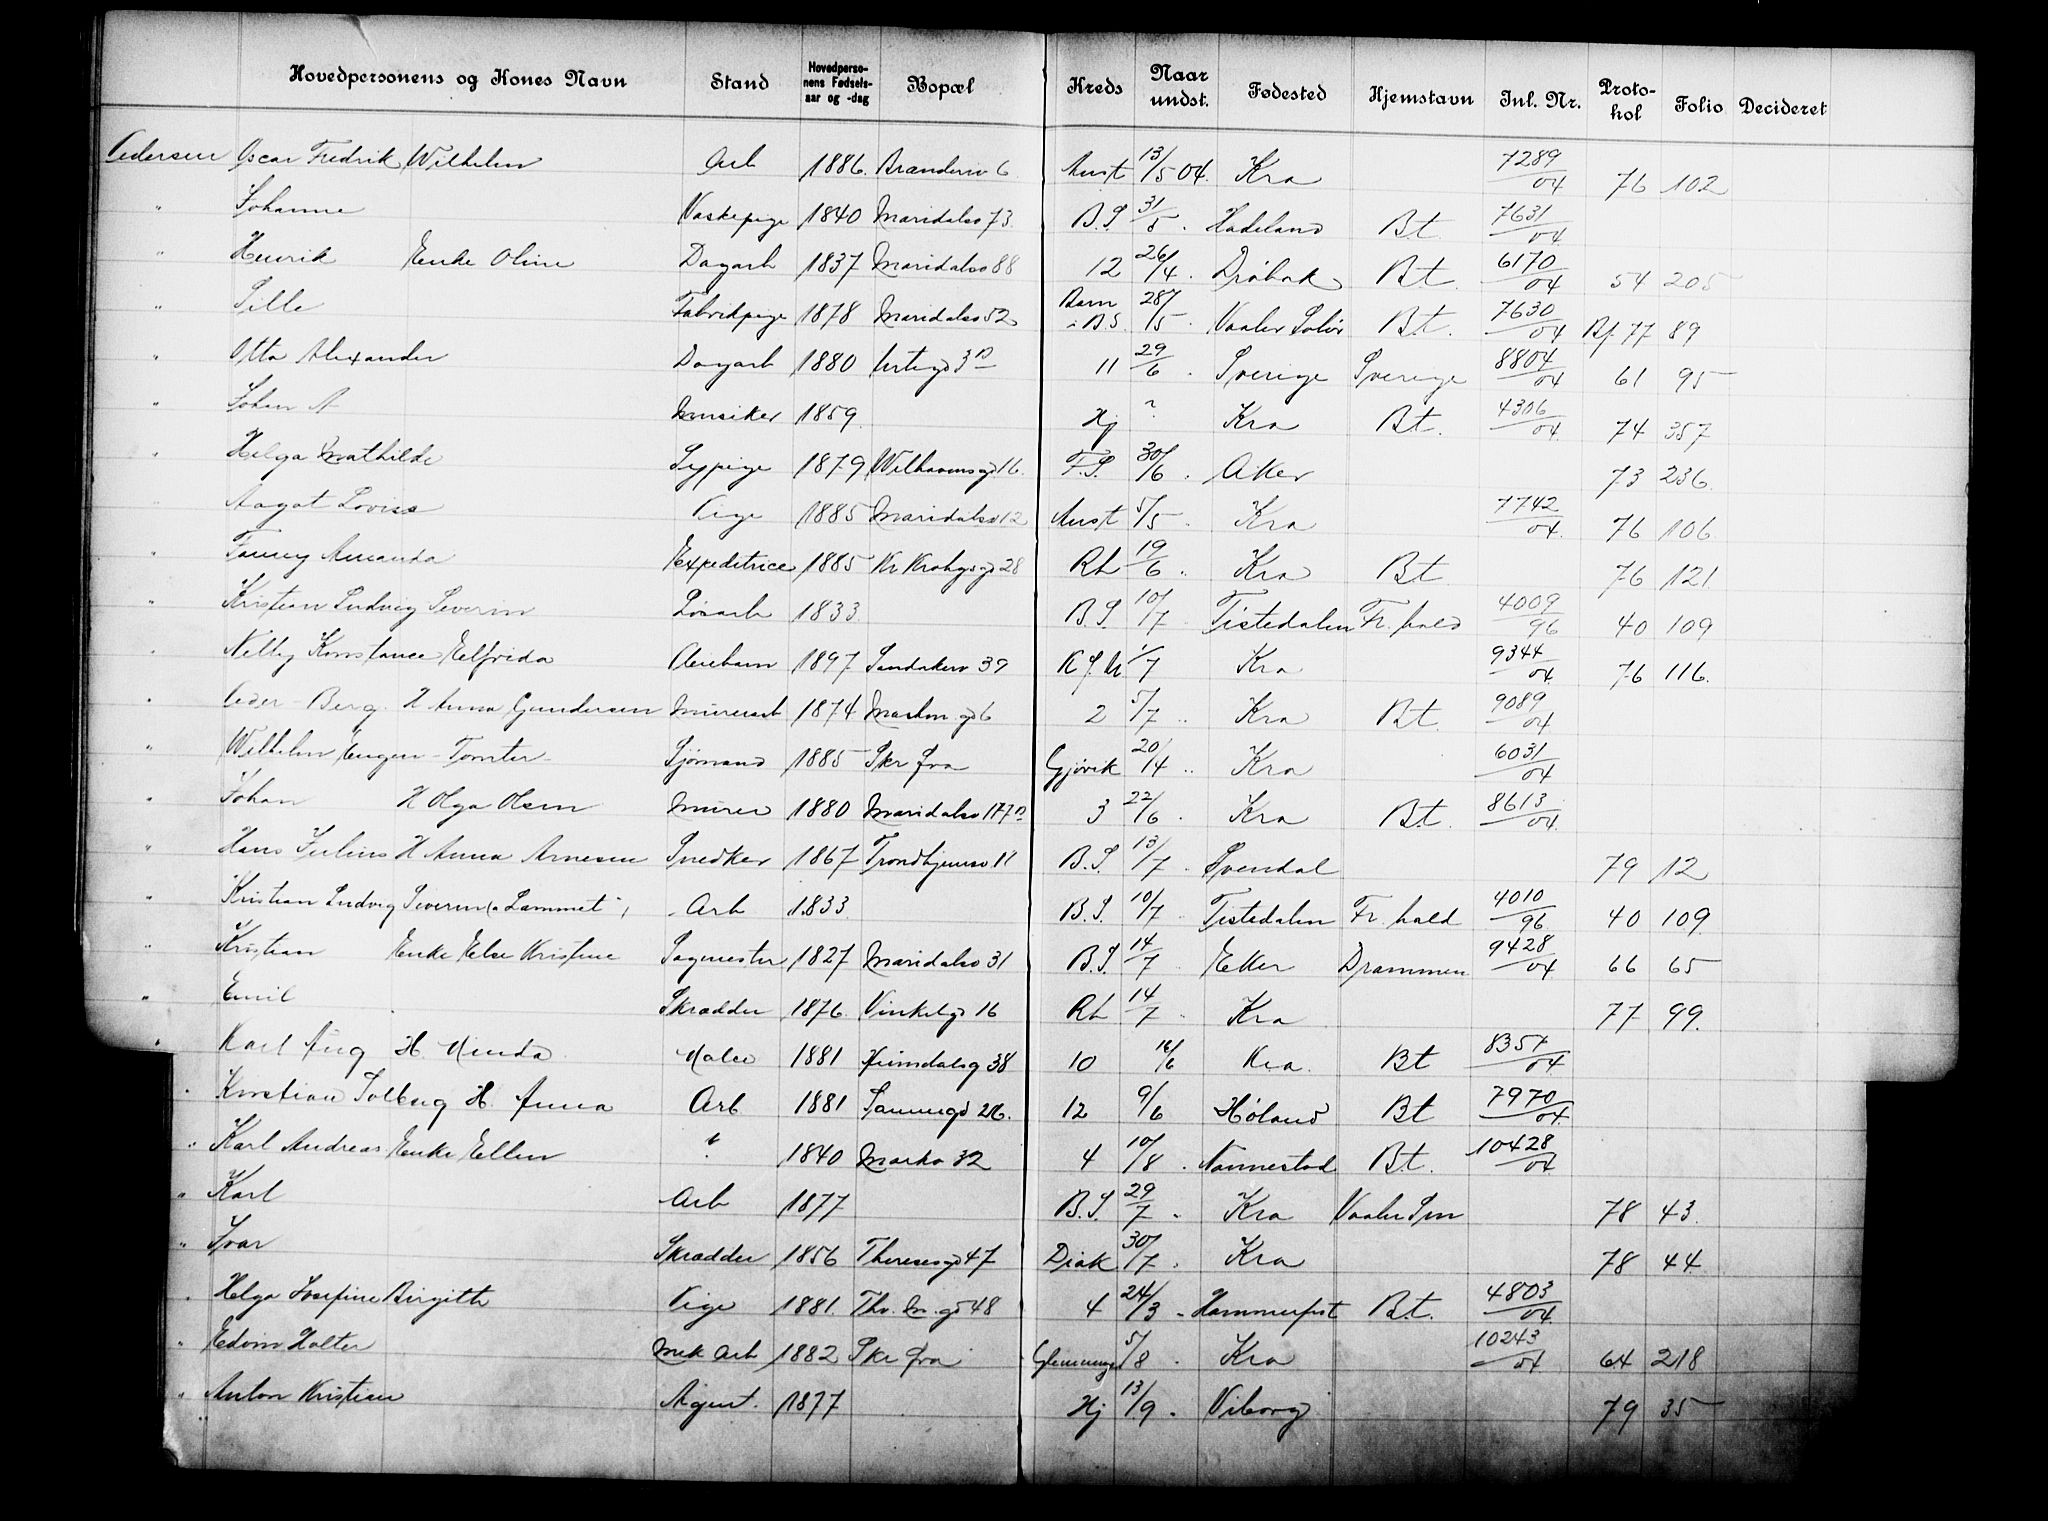 Hovedpersonens og Kones Navn Stand Hovedperso-nens Fødsels-aar og -dag Bopæl Kreds Naar undst. Fødested Hjemstavn Inl. Nr. Proto-kol Folio Decideret
Pedersen Oscar Fredrik Wilhelm Arb 1886. Brænderiv 6 Anst 13/5 04. Kra 7289/04 76 102
" Johanne Vaskepige 1840 Maridalsv 73. B.S 31/5 . Hadeland B.t. 7631/04
" Henrik Enke Oline Dagarb 1837 Maridalsv 88 12 26/4 . Drøbak Bt. 6170/04 54 205
" Pille Fabrikpige 1878 Maridalsv 52 Barn i B S. 28/5 . Vaaler Solør Bt. 7630/04 Bf. 77 89
" Otto Alexander Dagarb 1880 Urtegd 3 11 29/6 . Sverige Sverige 8804/04 61 95
" Johan A Musiker 1859. Hj ? Kra Bt. 4306/04 74 357
" Helga Mathilde Sypige 1879 16. F.S. 30/6 . Aker 73 236.
" Aagot Lovise Pige 1885 Maridalsv 12 Anst 5/5 . Kra 7742/04. 76 106.
" Fanny Amanda Expeditrice 1885 Kr Kroghsgd 28 Rh 19/6 .. Kra Bt 76 121.
" Kristian Ludvig Severin Løsarb 1833. B.S. 10/7 Tistedalen Fr. hald 4009/96 40 109
" Nelly Konstance Elfrida Pleiebarn 1897 Sandakerv 39 K f. U 1/7 Kra 9344/04. 76 116.
" Peder - Berg. H Anna Gundersen Murerarb 1874 6 2 5/7 .. Kra Bt. 9089/04
" Wilhelm Eugen - Tomter - Sjømand 1885 Skr fra Gjøvik 20/4 .. Kra 6031/04
" Johan H Olga Olsen Murer 1880 Maridalsv 3 22/6 . Kra B.t. 8613/04.
" Hans Julius H Anna Arnesen Snedker 1867 Trondhjemsv 11 B.S. 13/7 . Svendal 79 12
" Kristian Ludvig Severin ("Lammet") Arb 1833 B.S. 10/7 . Tistedalen Fr. hald 4010/96 40 109.
" Kristian Enke Else Kristine Sagmester 1827 Maridalsv 31 B.S. 14/7 . Eker Drammen 9428/04 66 65
" Emil Skrædder 1876. Vinkelgd 16 Rh 14/7 . Kra 77 99.
" Karl Aug H Minda Maler 1881 Heimdalsg 38 10 16/6 Kra. Bt 8357/04
" Kristian Solberg H. Anna Arb 1881 12 9/6 Høland Bt 7970/04.
" Karl Andreas Enke Ellen " 1840 Markv 32 4 10/8 . Nannestad B.t. 10428/04
" Karl Arb 1877 B.S. 29/7 . Kra Vaaler Smn 78 43.
" Ivar Skrædder 1856 Theresesgd 47 Diak 30/7 . Kra 78 44.
" Helga Josefine Birgitte Pige 1881. Thv. M. gd 48 4 24/3 . Hammerfest B.t. 4803/04.
" Edvin Holter Mek Arb 1882 Skr fra Glemminge 5/8 . Kra 10243/04. 64 218
" Anton Kristian Agent. 1877 Hj 13/9 . Viborg 79 35
"